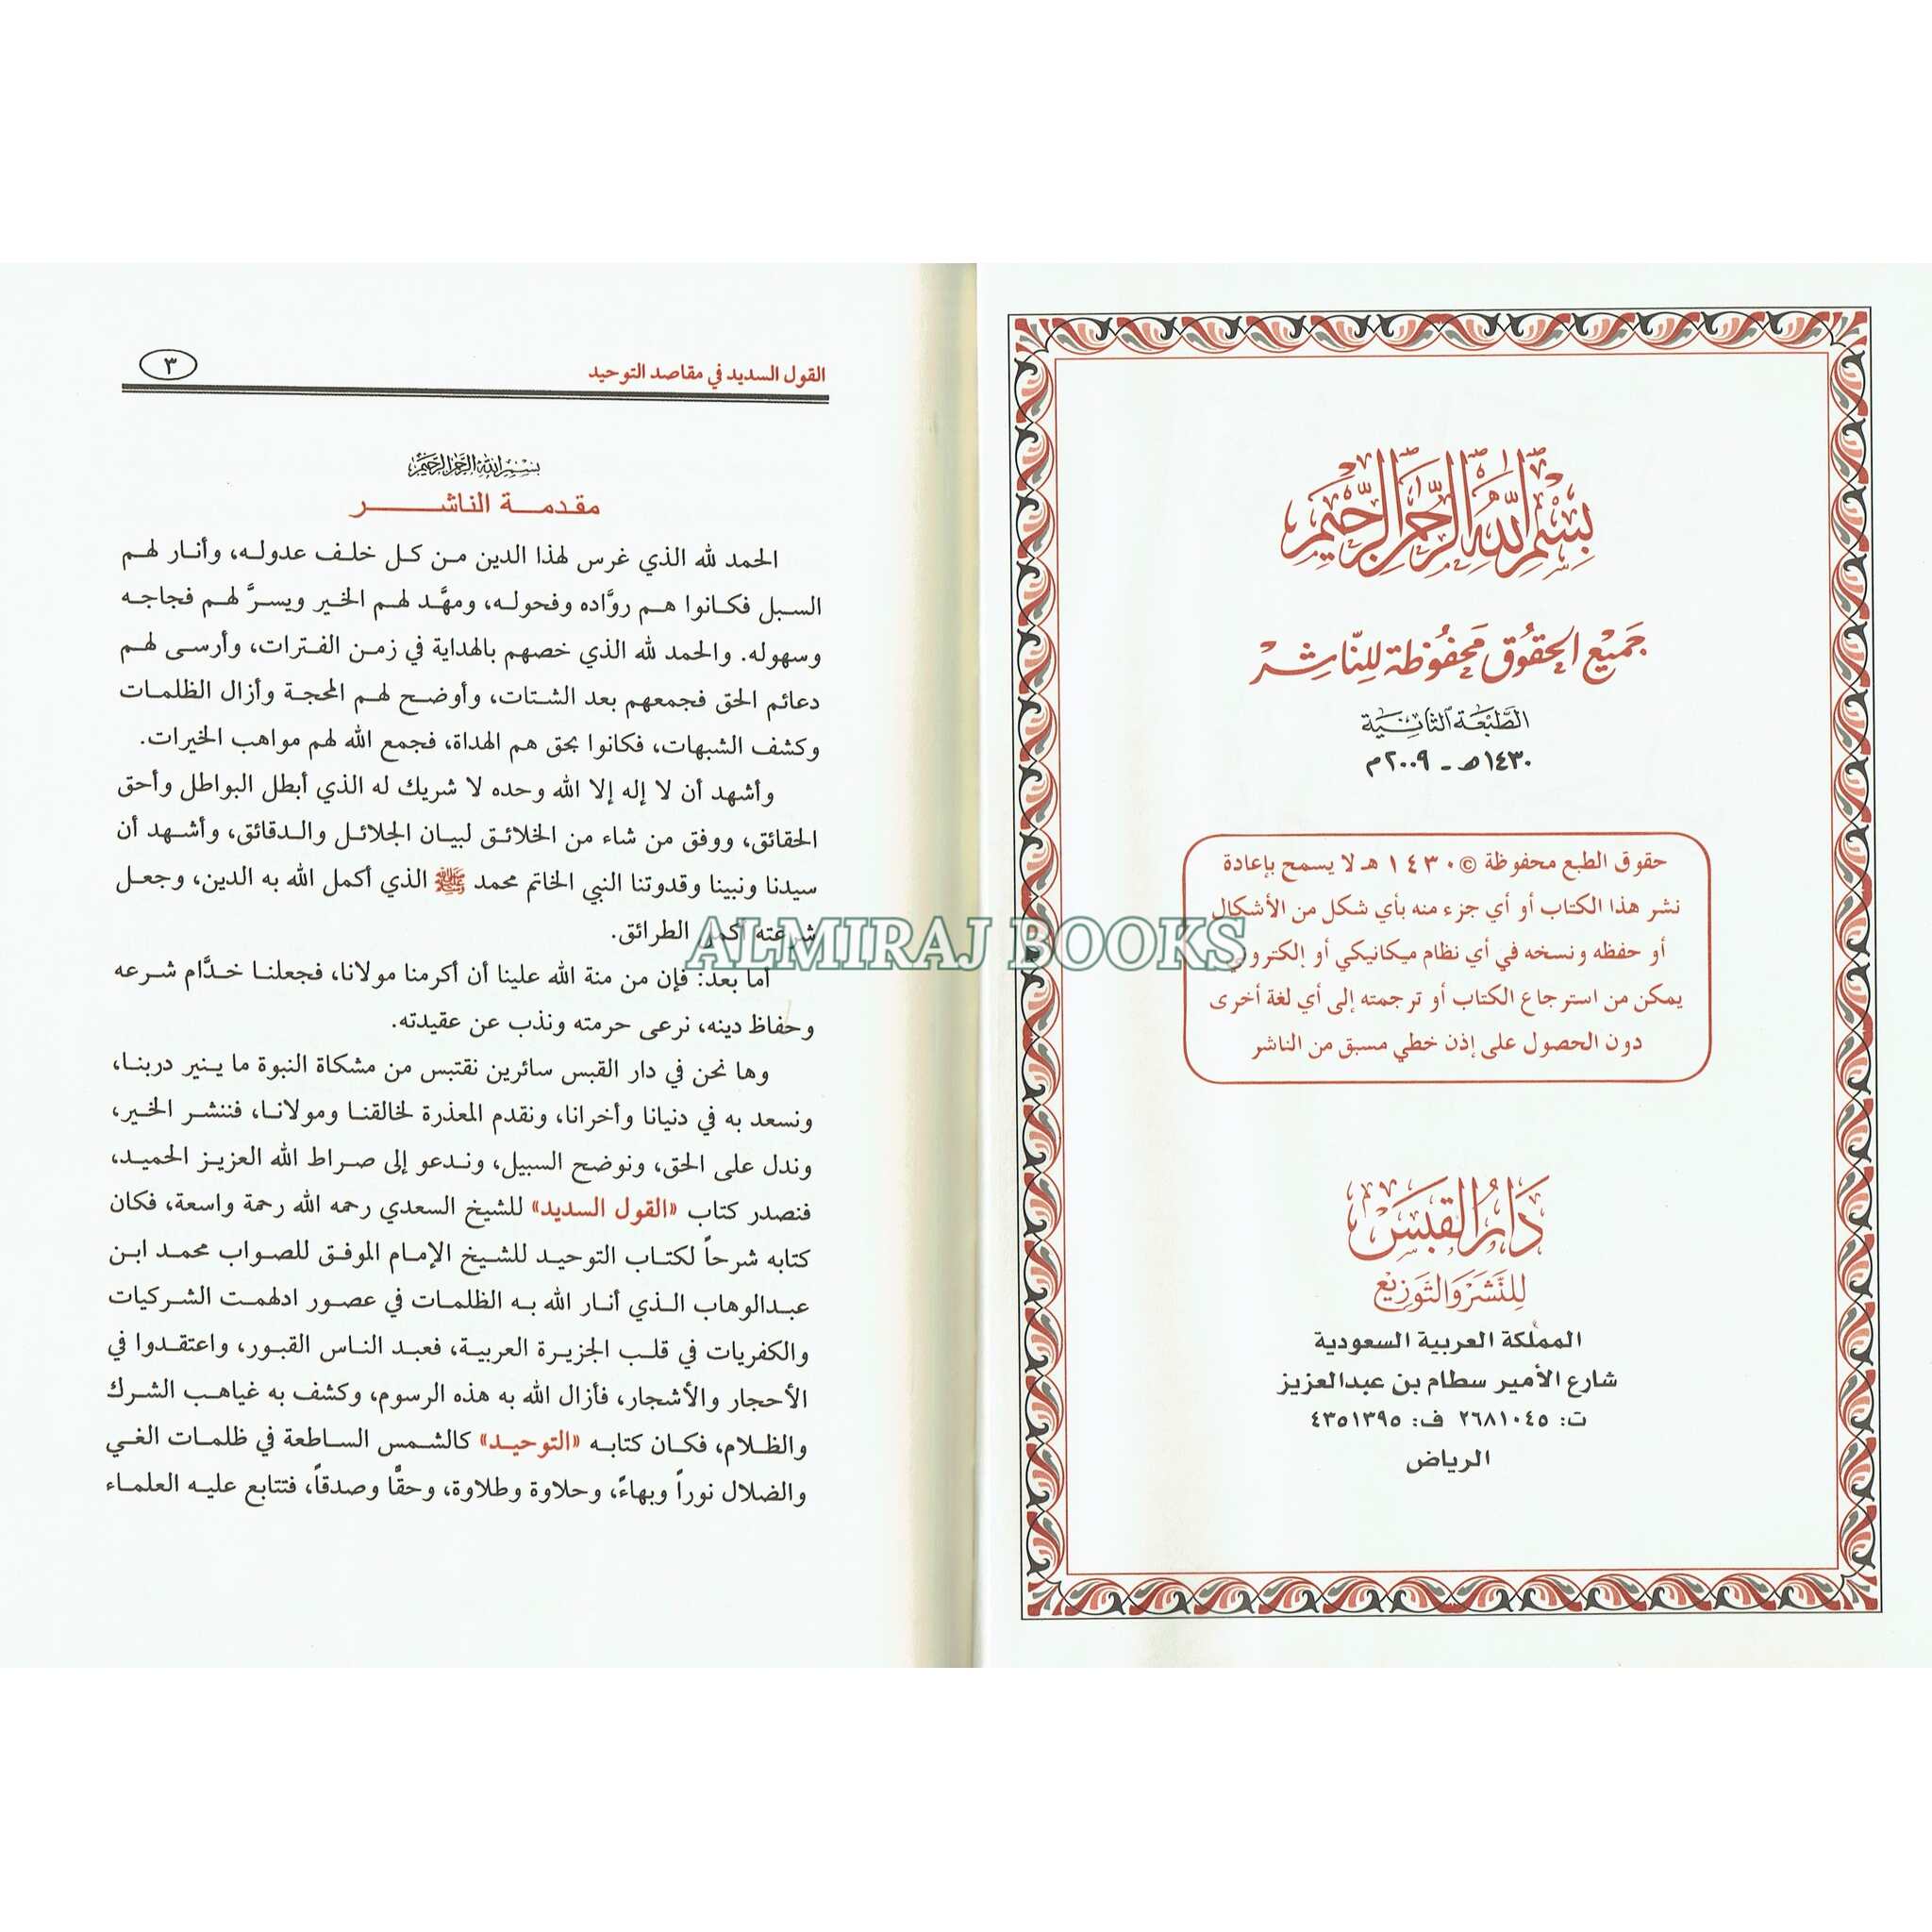 بِسْمِ اللَّهِ الرَّحْمَنِ الرَّحِيمِ
جَمِيْع الحُقُوُق مَحفُوُظة لِلنّاشِرْ
الطَّبْعَة الثَانِيَة
١٤٣٠هـ - ٢٠٠٩م
حقوق الطبع محفوظة © ١٤٣٠ هـ لا يسمح بإعادة
نشر هذا الكتاب أو أي جزء منه بأي شكل من الأشكال
أو حفظه ونسخه في أي نظام ميكانيكي أو إلكتروني
يمكن من استرجاع الكتاب أو ترجمته إلى أي لغة أخرى
دون الحصول على إذن خطي مسبق من الناشر
دَارُ القَبَسْ
لِلنَّشرِ وَالتَوزِيْع
المملكة العربية السعودية
شارع الأمير سطام بن عبدالعزيز
ت: ٢٦٨١٠٤٥ ف: ٤٣٥١٣٩٥
الرياض
القول السديد في مقاصد التوحيد
٣
بسم الله الرحمن الرحيم
مقدمة الناشر
الحمد لله الذي غرس لهذا الدين من كل خلف عدوله، وأنار لهم
السبل فكانوا هم روَّاده وفحوله، ومهَّد لهم الخير ويسرَّ لهم فجاجه
وسهوله. والحمد لله الذي خصهم بالهداية في زمن الفترات، وأرسى لهم
دعائم الحق فجمعهم بعد الشتات، وأوضح لهم المحجة وأزال الظلمات
وكشف الشبهات، فكانوا بحق هم الهداة، فجمع الله لهم مواهب الخيرات.
وأشهد أن لا إله إلا الله وحده لا شريك له الذي أبطل البواطل وأحق
الحقائق، ووفق من شاء من الخلائق لبيان الجلائل والدقائق، وأشهد أن
سيدنا ونبينا وقدوتنا النبي الخاتم محمد ﷺ الذي أكمل الله به الدين، وجعل
شرعته أكمل الطرائق.
أما بعد: فإن من منة الله علينا أن أكرمنا مولانا، فجعلنا خدَّام شرعه
وحفاظ دينه، نرعى حرمته ونذب عن عقيدته.
وها نحن في دار القبس سائرين نقتبس من مشكاة النبوة ما ينير دربنا،
ونسعد به في دنيانا وأخرانا، ونقدم المعذرة لخالقنا ومولانا، فننشر الخير،
وندل على الحق، ونوضح السبيل، وندعو إلى صراط الله العزيز الحميد،
فنصدر كتاب «القول السديد» للشيخ السعدي رحمه الله رحمة واسعة، فكان
كتابه شرحاً لكتاب التوحيد للشيخ الإمام الموفق للصواب محمد ابن
عبدالوهاب الذي أنار الله به الظلمات في عصور ادلهمت الشركيات
والكفريات في قلب الجزيرة العربية، فعبد الناس القبور، واعتقدوا في
الأحجار والأشجار، فأزال الله به هذه الرسوم، وكشف به غياهب الشرك
والظلام، فكان كتابه «التوحيد» كالشمس الساطعة في ظلمات الغي
والضلال نوراً وبهاءً، وحلاوة وطلاوة، وحقًّا وصدقاً، فتتابع عليه العلماء
ALMIRAJ BOOKS